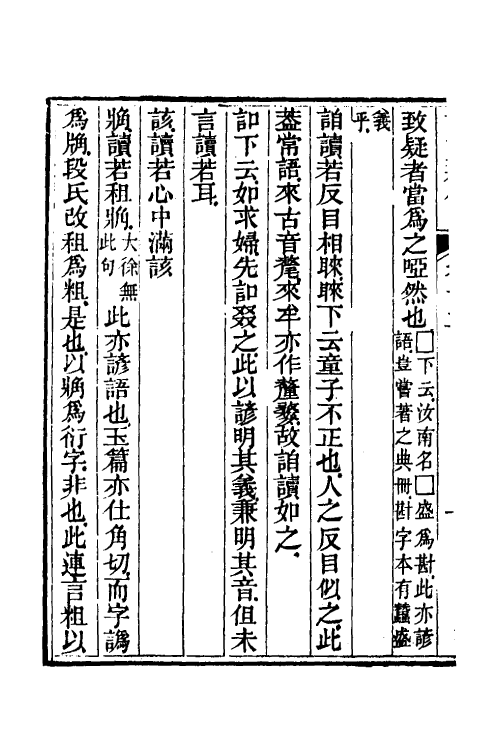 致疑者當爲之啞然也囗下云汝南名囗盛爲卙此亦諺語豈嘗著之典冊卙字本有蠶盛
義乎
詯讀若反目相睞睞下云童子不正也人之反目似之此
葢常語來古音氂來牟亦作釐麰故詯讀如之
下云如求婦先叕之此以諺明其義兼明其音但未
言讀若耳
該讀若心中滿該
䚘讀若租䚘大徐無此句此亦諺語也玉篇亦仕角切而字譌
爲段氏改租爲粗是也以䚘爲衍字非也此連言粗以